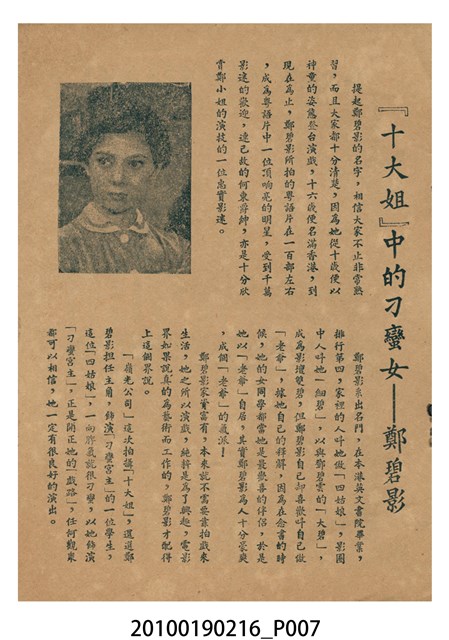 『十大姐』中的刁蠻女——鄭碧影
提起鄭碧影的名字，相信大家不止非常熟
習，而且大家都十分清楚，因為她從十歲便以
神童的姿態登台演戲，十六歲便名滿香港，到
現在為止，鄭碧影所拍的粵語片在一百部左右
，成為粵語片中一位頂响亮的明星，受到千萬
影迷的歡迎，連已故的何東爵紳，亦是十分欣
賞鄭小姐的演技的一位忠實影迷。
鄭碧影系出名門，在本港英文書院畢業，
排行第四，家裡的人叫她做「四姑娘」，影圈
中人叫她「細碧」，以與鄧碧雲的「大碧」，
成為影壇雙碧，但鄭碧影自己却喜歡叫自己做
「老爺」，據她自己的解釋，因為在念書的時
候，她的女同學都當她是最歡喜的伴侶，於是
她以「老爺」自居，其實鄭碧影為人十分豪爽
，成個「老爺」的氣派！
鄭碧影家資富有，本來就不需要靠拍戲來
生活，她之所以演戲，純粹是為了興起，電影
界如果說真的為藝術而工作的，鄭碧影才配得
上這個界說。
「嶺光公司」這次拍攝「十大姐」，選鄭
碧影担任主角，飾演「刁蠻宮主」的一位學生，
這位「四姑娘」，一向脾氣就很刁蠻，以她飾演
「刁蠻宮主」，正是開正她的「戲路」，任何觀衆
都可以相信，她一定有很良好的演出。
20100190216_P007